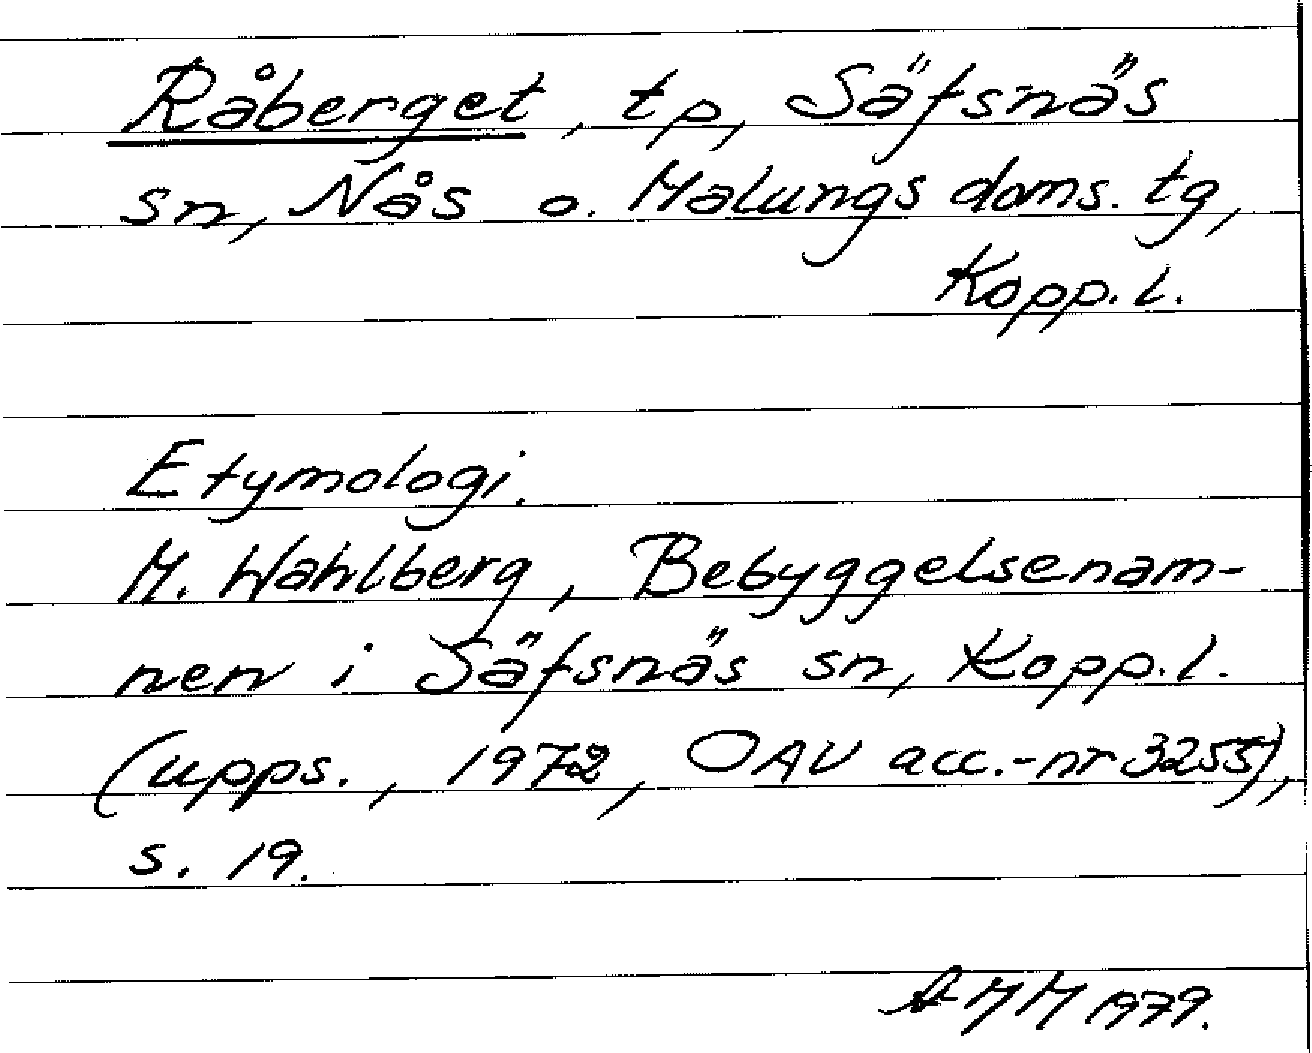 Råberget, tp, Säfsnäs
sn, Nås o. Malungs doms. tg,
Kopp. l.
Etymologi.
M. Wahlberg, Bebyggelsenam-
nen i Säfsnäs sn, Kopp. l.
(upps., 1972, OAU acc.-nr 3255),
s. 19.
AMM 1979.